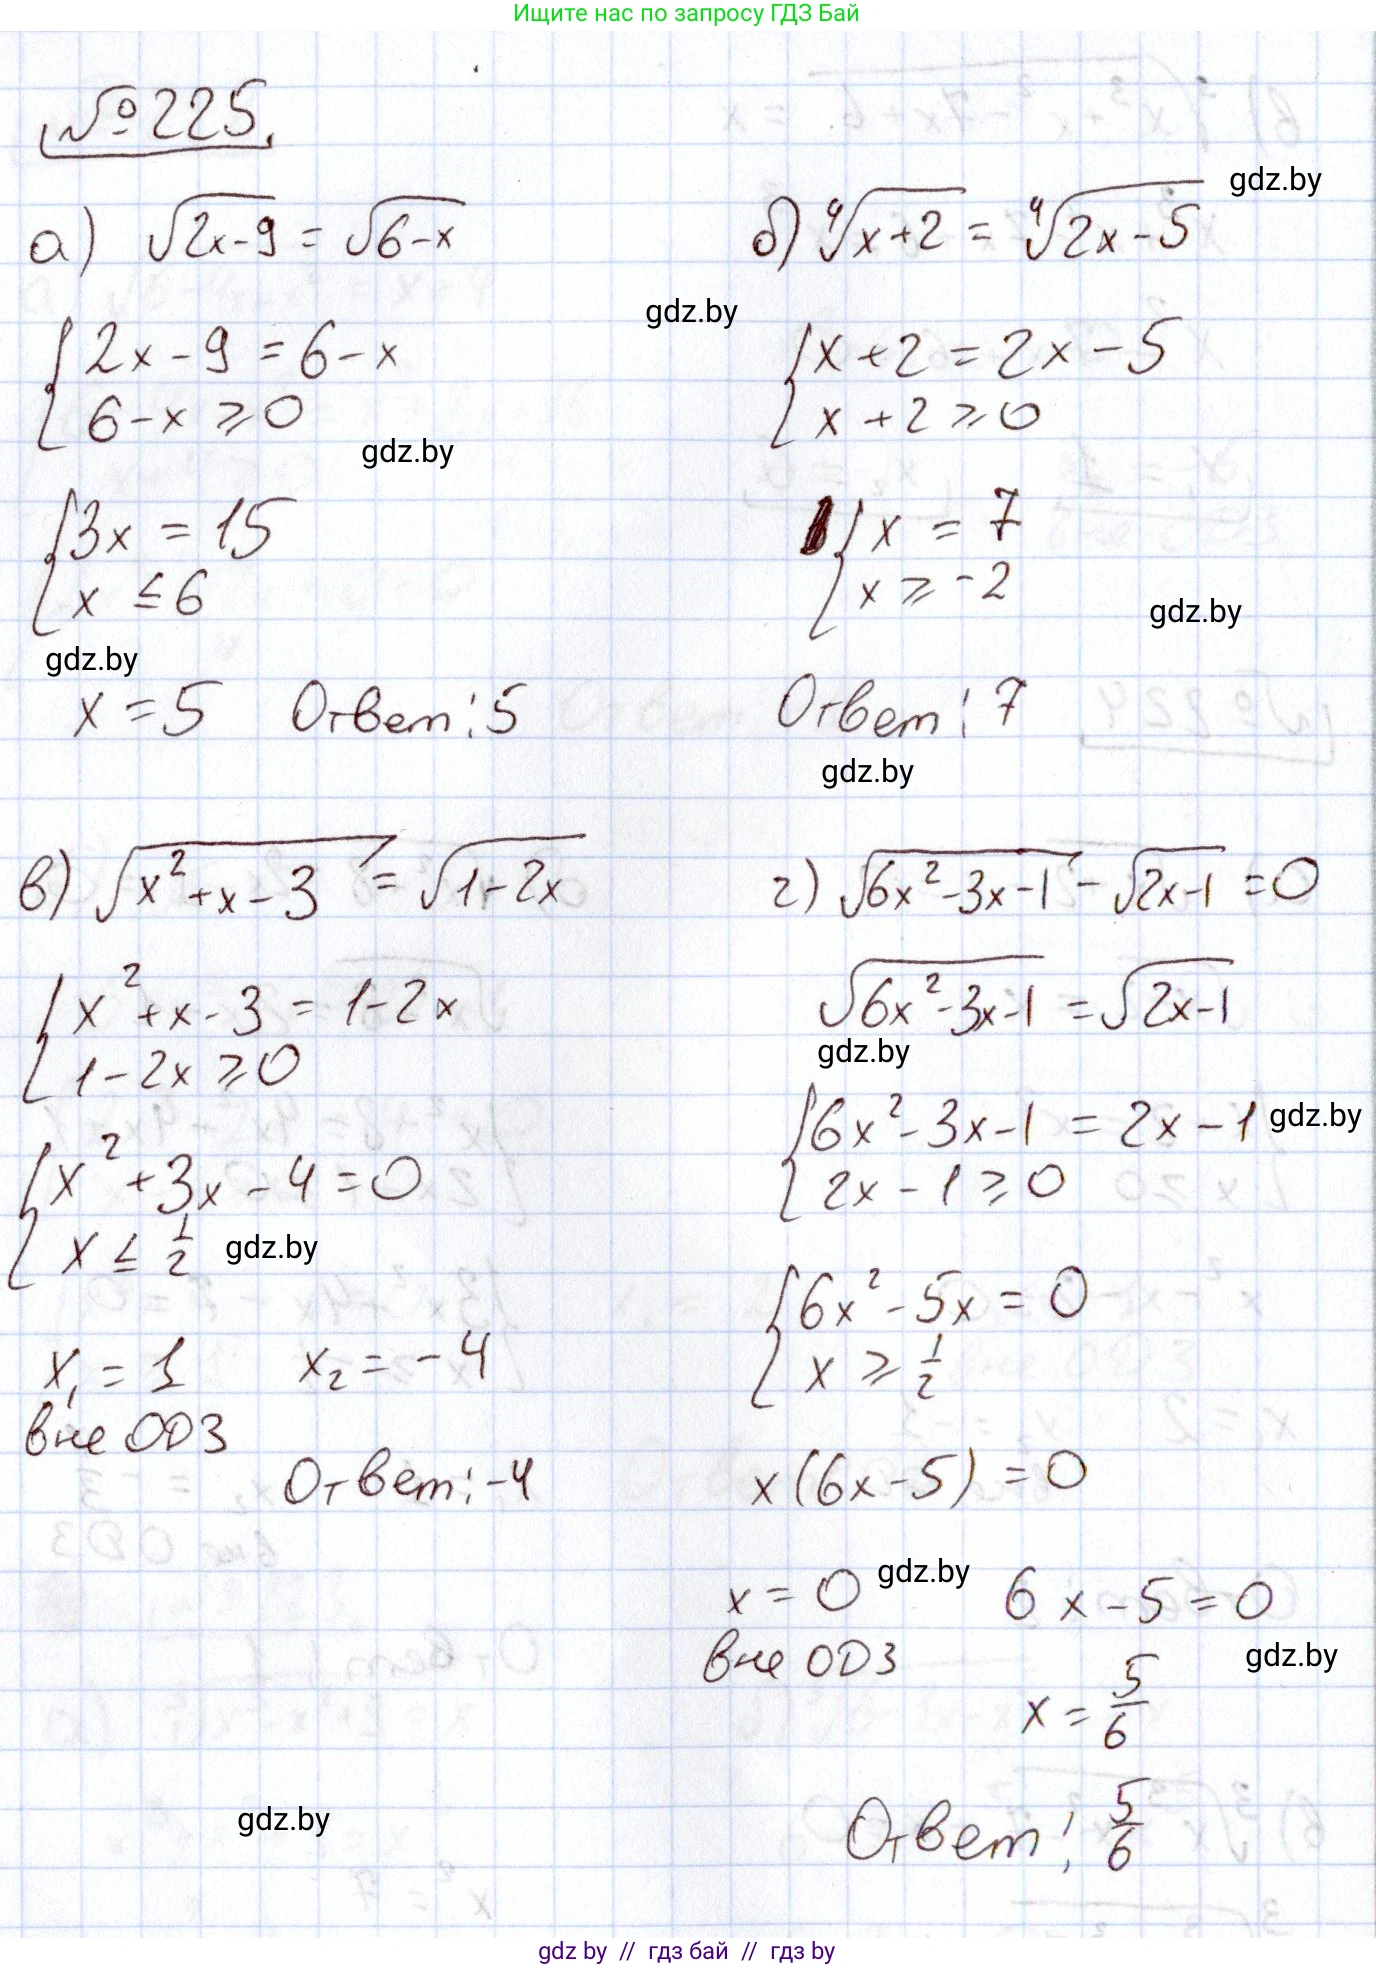 Ищите нас по запросу ГДЗ Бай
№225.
gdz.by
а) √(2x-9) = √(6-x)
{ 2x-9 = 6-x
6-x ≥ 0
gdz.by
{ 3x = 15
x ≤ 6
gdz.by
x = 5 Ответ: 5
б) ⁴√(x+2) = ⁴√(2x-5)
gdz.by
{ x+2 = 2x-5
x+2 ≥ 0
{ x = 7
x ≥ -2
gdz.by
Ответ: 7
gdz.by
в) √(x²+x-3) = √(1-2x)
{ x²+x-3 = 1-2x
1-2x ≥ 0
{ x²+3x-4 = 0
x ≤ 1/2
gdz.by
x₁ = 1 x₂ = -4
вне ОДЗ
Ответ: -4
г) √(6x²-3x-1) - √(2x-1) = 0
√(6x²-3x-1) = √(2x-1)
gdz.by
{ 6x²-3x-1 = 2x-1
2x-1 ≥ 0
gdz.by
{ 6x²-5x = 0
x ≥ 1/2
x(6x-5) = 0
x = 0 6x-5 = 0
gdz.by
вне ОДЗ
gdz.by
x = 5/6
gdz.by
Ответ: 5/6
gdz by // гдз бай // гдз by